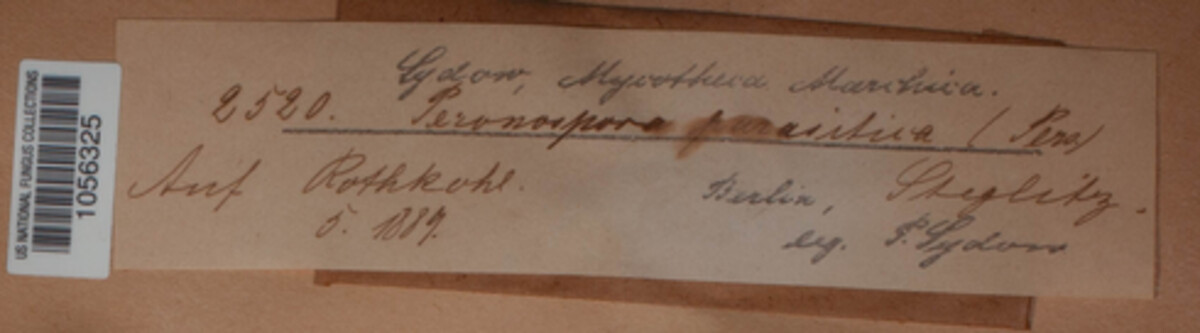 US NATIONAL FUNGUS COLLECTIONS
1056325
Sydow, Mycotheca Marchica.
2520. Peronospora parasitica (Pers)
Auf Rothkohl. Berlin, Steglitz.
5. 1889. leg. P. Sydow